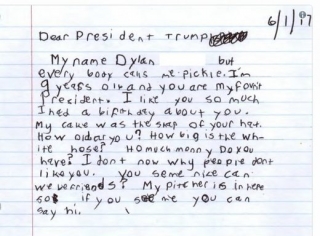 6/1/17
Dear President Trump
My name Dylan but
every body calls me pickle. I'm
9 years old and you are my favorit
President. I like you so much
I had a birthday about you.
My cake was the shap of your hat.
How old are you? How big is the wh-
ite hose? Ho much monny Do you
have? I don't now why people dont
like you. You seme nice can
we be friends? My pitcher is in here
so if you see me you can
say hi.